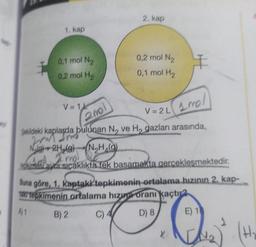 2. kap
1. kap
0,1 mol N₂
0,2 mol H₂
0,2 mol N₂
0,1 mol H₂
V = 1 L
2 mol
V = 2 L
1 mol
Şekildeki kaplarda bulunan N₂ ve H₂ gazları arasında,
N₂(g) + 2H₂(g) → N₂H₄(g)
tepkimesi aynı sıcaklıkta tek basamakta gerçekleşmektedir.
Buna göre, 1. kaptaki tepkimenin ortalama hızının 2. kap-
taki tepkimenin ortalama hızına oranı kaçtır?
A) 1
B) 2
C) 4
D) 8
E) 16